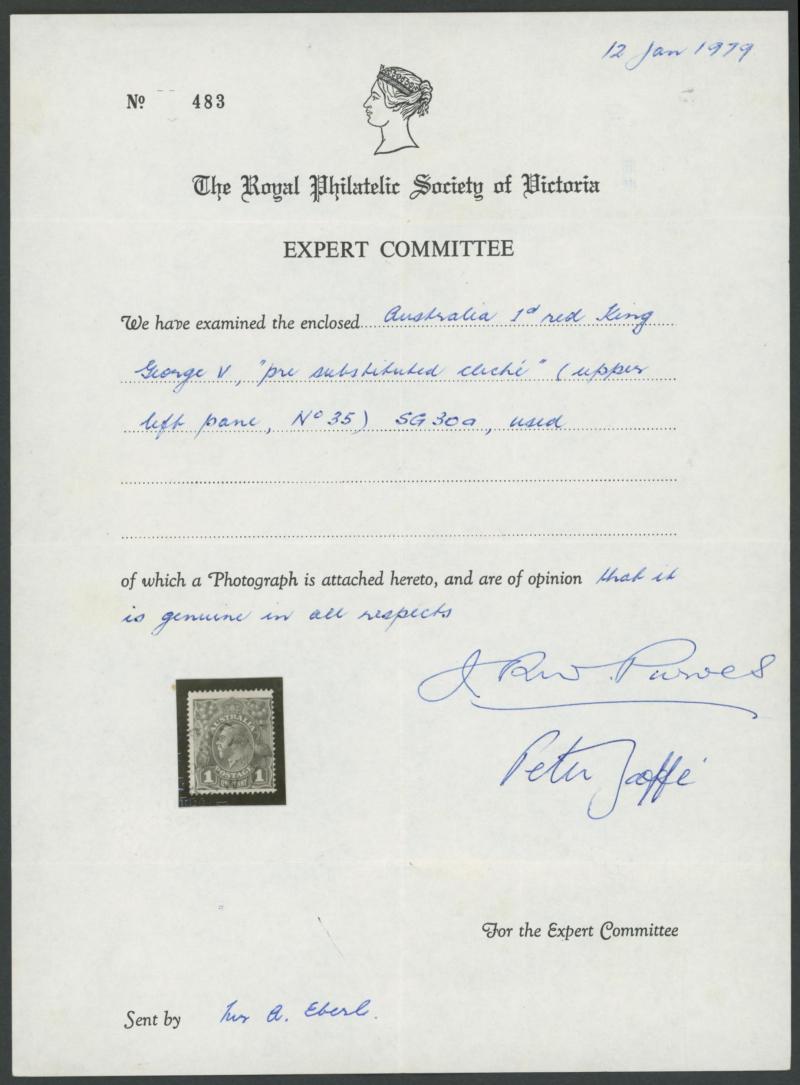 12 Jan 1979
No 483
The Royal Philatelic Society of Victoria
EXPERT COMMITTEE
We have examined the enclosed Australia 1d red King
George V, "pre substituted cliché" (upper
left pane, No 35) SG 30a, used
of which a Photograph is attached hereto, and are of opinion that it
is genuine in all respects
J R W Purves
AUSTRALIA
1 1
POSTAGE
ONE PENNY
Peter Jaffé
For the Expert Committee
Sent by Mr A. Eberl.